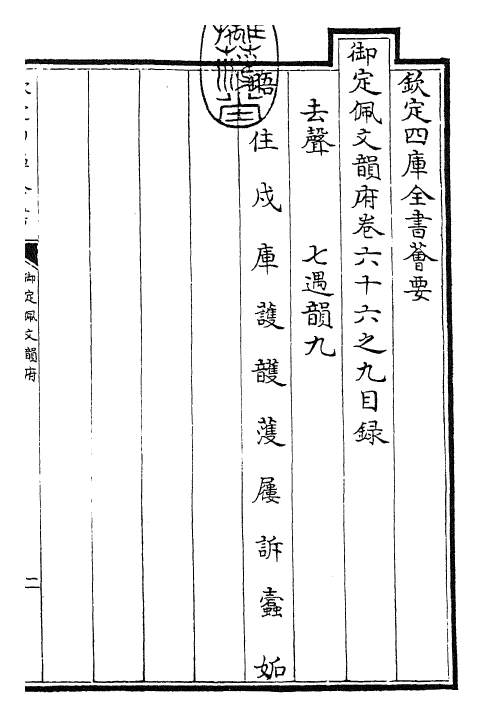 欽定四庫全書薈要
御定佩文韻府卷六十六之九目録
去聲　　七遇韻九
住戍庫護頀濩屨訴蠧妬
御定佩文韻府
二